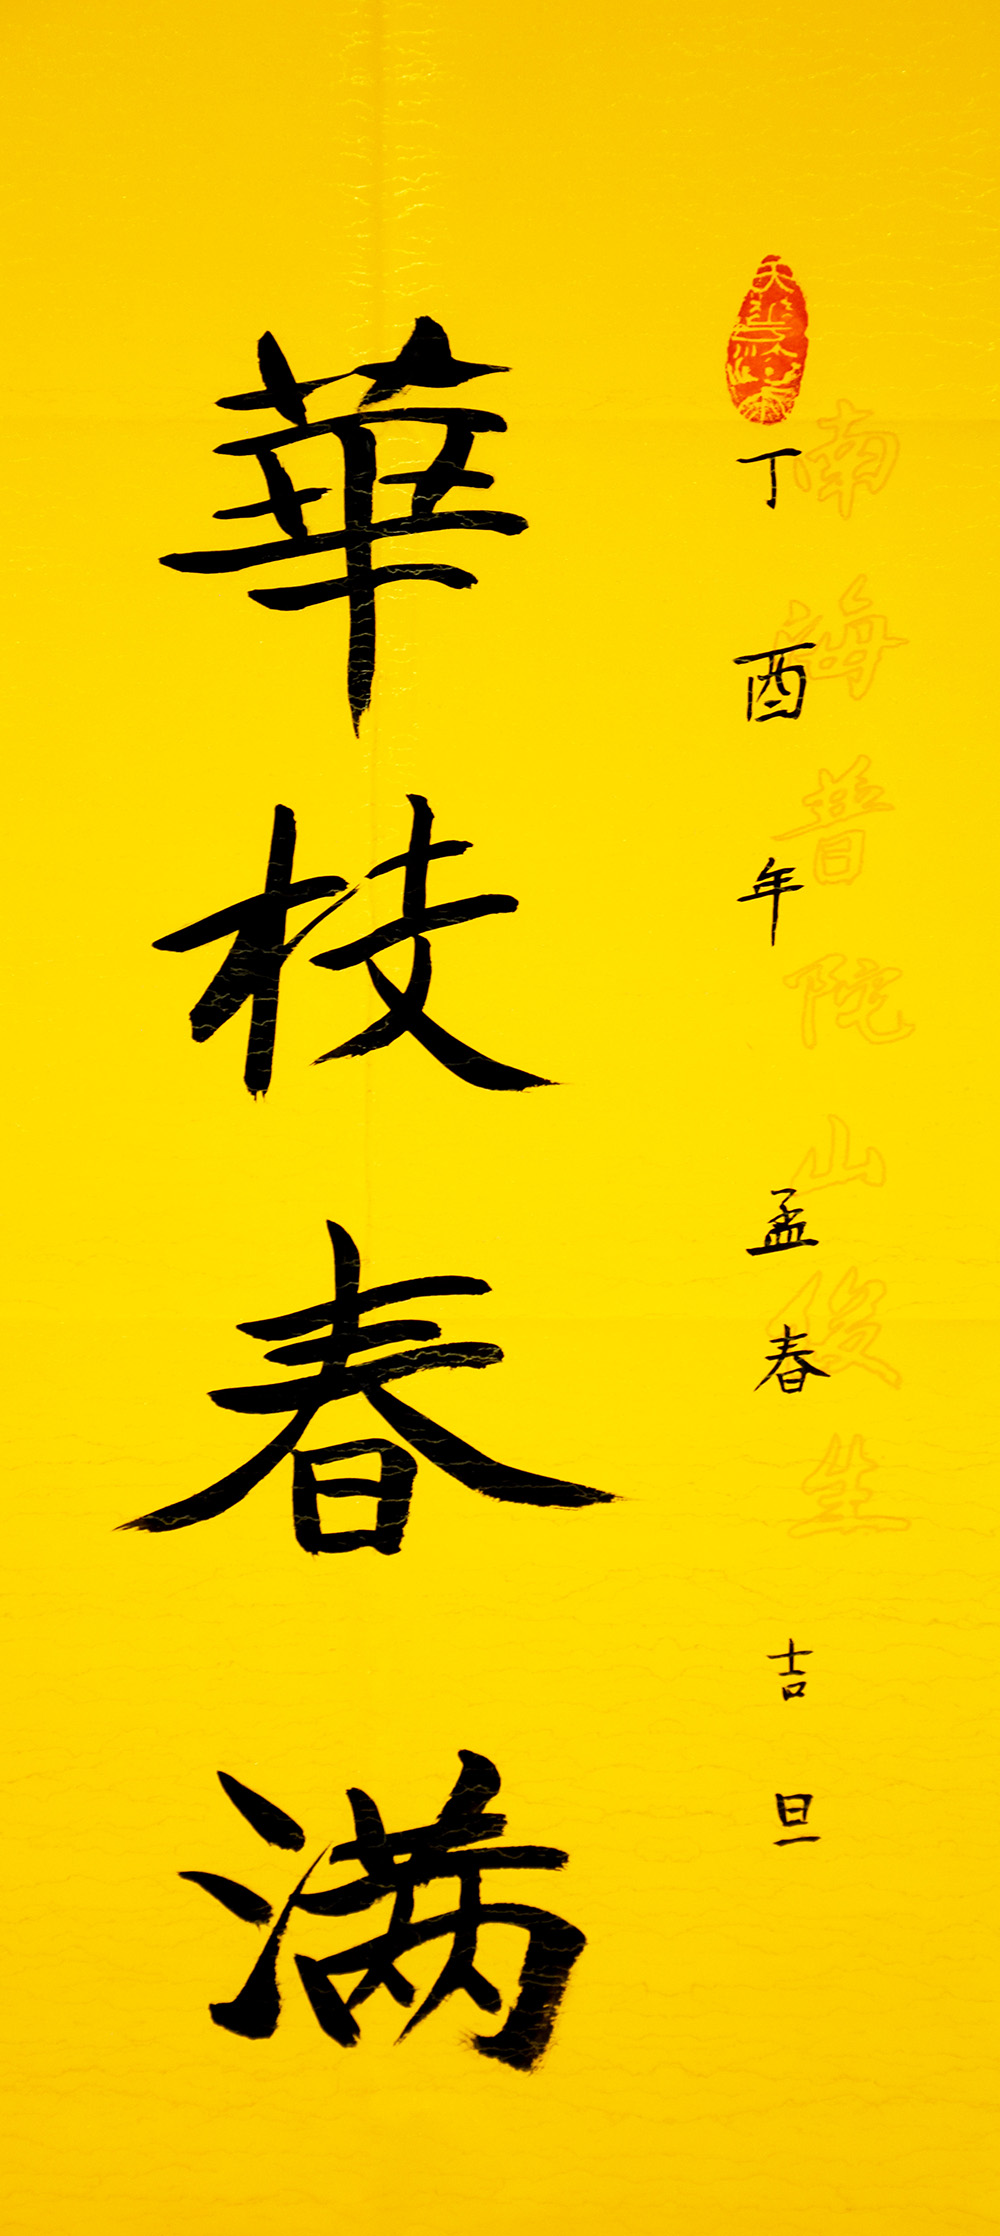 南海普陀山俊生
丁酉年孟春吉旦
華枝春满